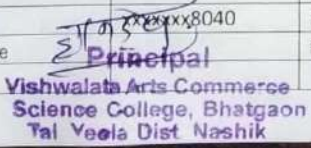 xxxxxxx8040
e
Principal
Vishwalata Arts Commerce
Science College, Bhatgaon
Tal Yeola Dist Nashik